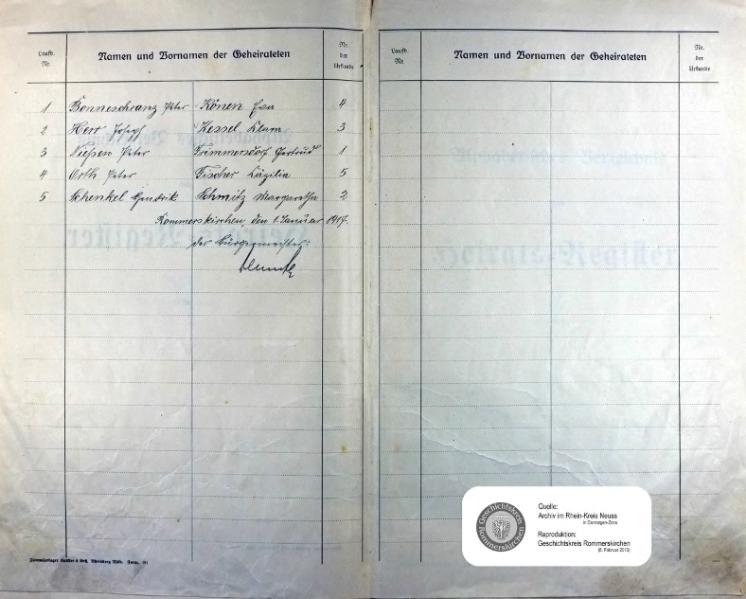 Laufd. Nr. Namen und Vornamen der Geheirateten Nr. der Urkunde
1 Bonneschranz Peter Könen Eva 4
2 Herr Josef Kessel Klara 3
3 Nießen Peter Frimmersdorf Gertrud 1
4 Orth Peter Fischer Cäzilia 5
5 Schenkel Hendrik Schmitz Margaretha 2
Rommerskirchen, den 1. Januar 1917.
der Bürgermeister:
Laufd. Nr. Namen und Vornamen der Geheirateten Nr. der Urkunde
Heirats-Register
Geschichtskreis Rommerskirchen
Quelle:
Archiv im Rhein-Kreis Neuss
in Dormagen-Zons
Reproduktion:
Geschichtskreis Rommerskirchen